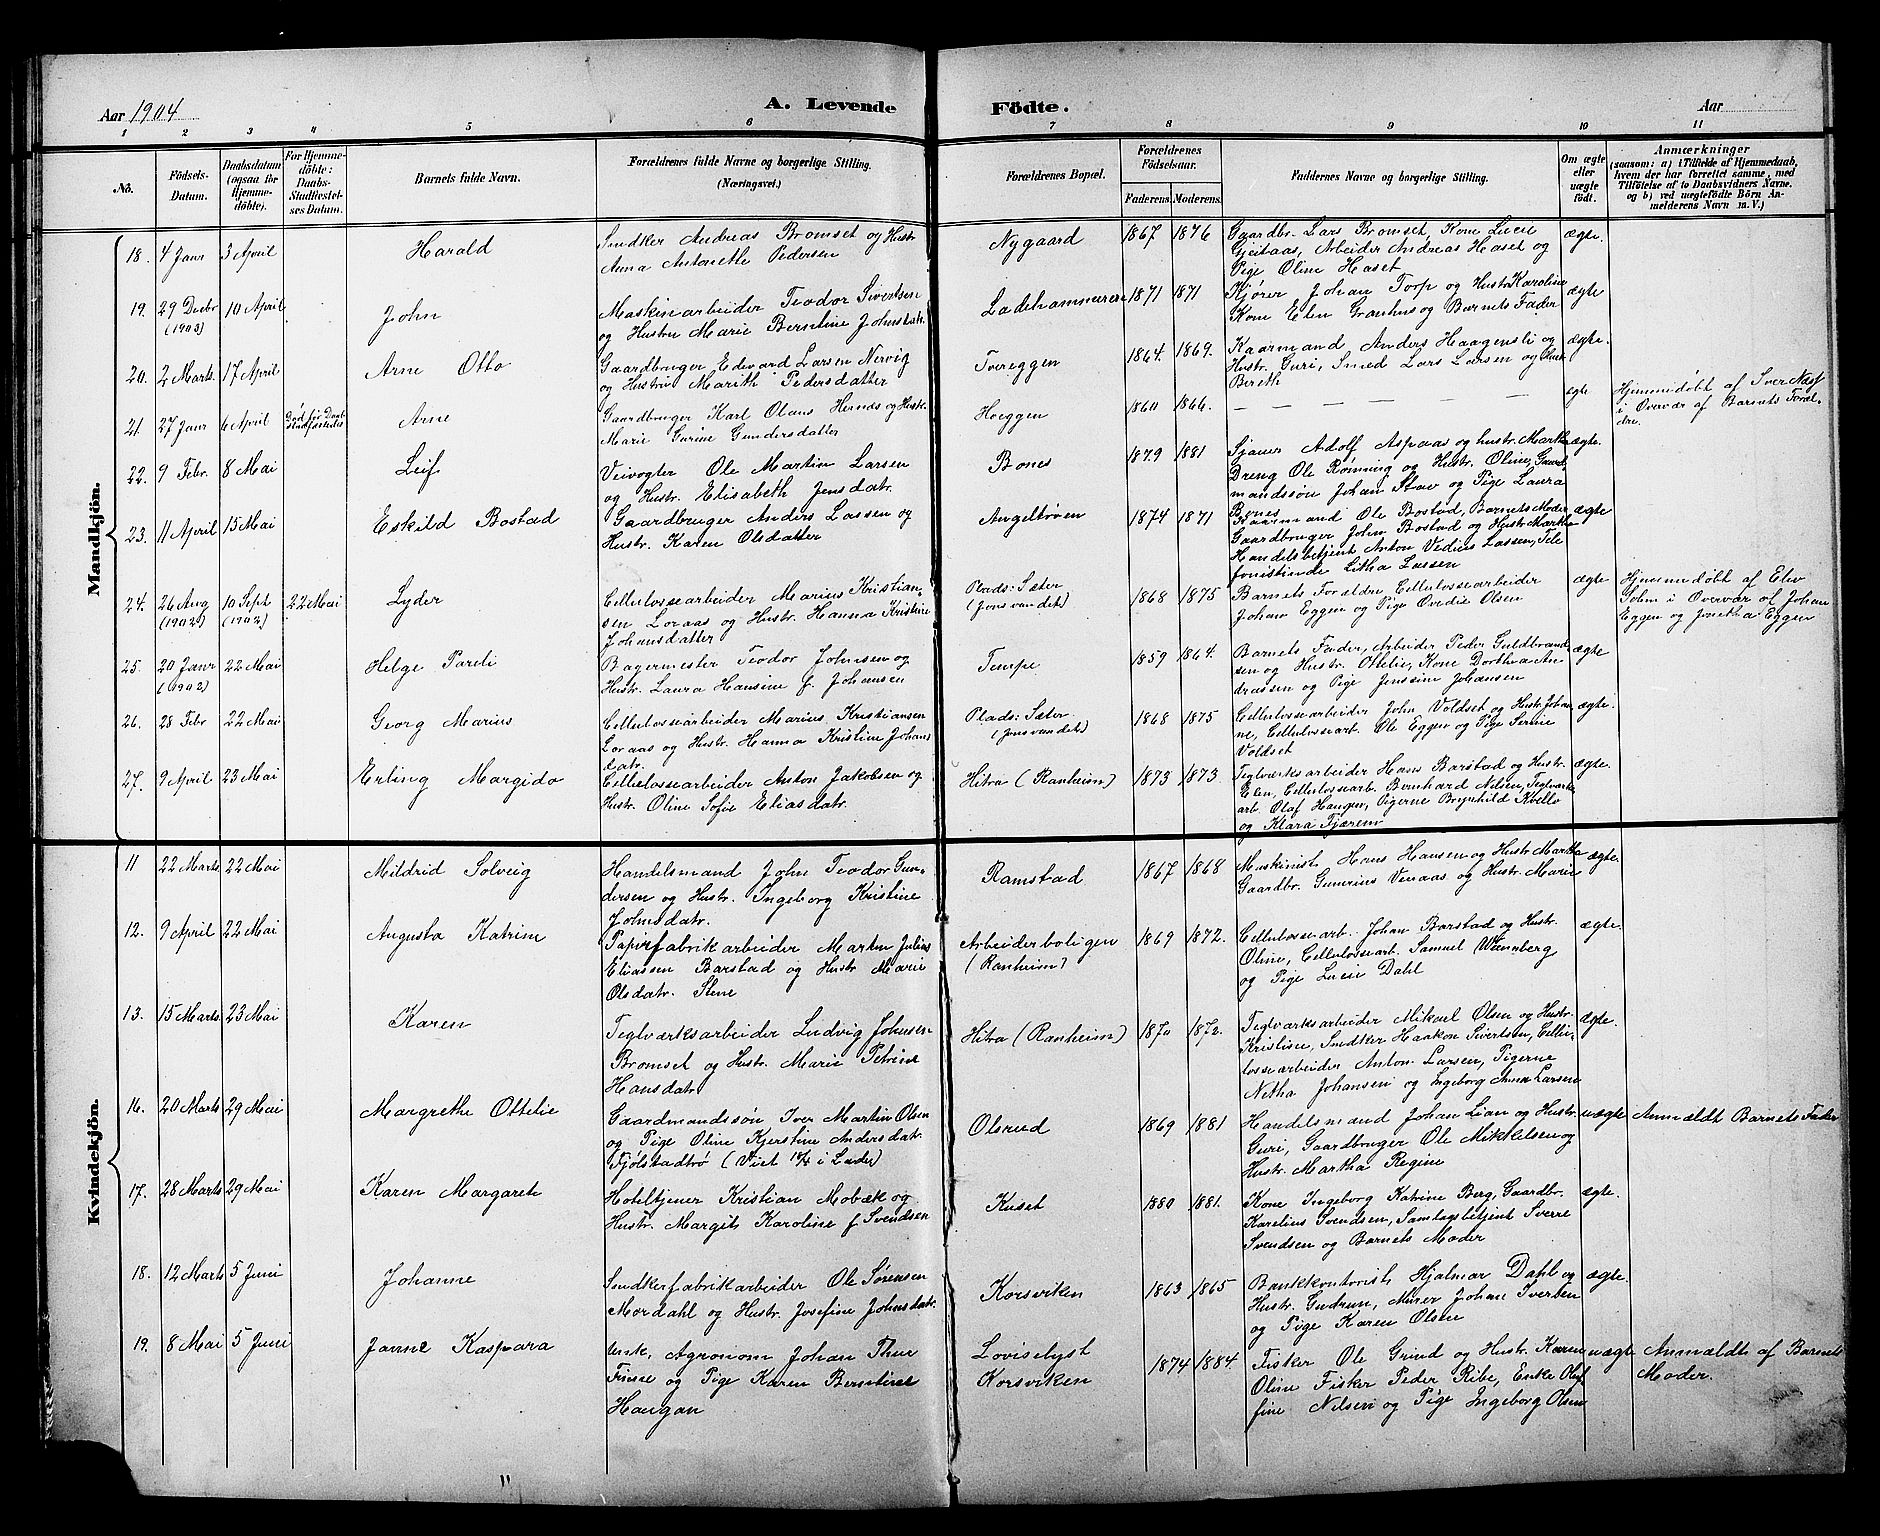 Aar 1904
A. Levende Födte.
Aar
1 2 3 4 5 6 7 8 9 10 11
No.
Födsels-Datum.
Daabsdatum (ogsaa for Hjemme-döbte).
For Hjemme-döbte: Daabs-Stadfæstel-ses Datum.
Barnets fulde Navn.
Forældrenes fulde Navne og borgerlige Stilling.
(Næringsvei.)
Forældrenes Bopæl.
Forældrenes Födselsaar.
Faderens. Moderens.
Faddernes Navne og borgerlige Stilling.
Om ægte eller uægte födt.
Anmærkninger
(saasom: a) i Tilfælde af Hjemmedaab,
hvem der har forrettet samme, med
Tilföielse af to Daabsvidners Navne.
og b) ved uegtefödte Börn An-
melderens Navn m. V.)
Mandkjön.
18. 4 Janr 3 April Harald
Snedker Andreas Bromset og Hustr
Anna Antonette Pedersen
Nygaard 1867 1876
Gaardbr. Lars Bromset, Kone Lucie
Gjeitaas, Arbeider Andreas Haset og
Pige Oline Haset
ægte.
19. 29 Decbr (1903) 10 April John
Maskinarbeider Teodor Sivertsen
og Hustru Marie Berntine Johnsdatr.
Ladehammeren 1871 1871
Kjører Johan Torp og Hustr Karoline
Kone Elen Granhus og Barnets Fader
ægte
20. 2 Marts. 17 April Arne Otto
Gaardbruger Edevard Larsen Nervig
og Hustru Marith Pedersdatter
Tvereggen 1864. 1869.
Kaarmand Anders Haagensli og
Hustr. Guri, Smed Lars Larsen og Hust
Bereth
ægte.
21. 27 Janr 6 April Arne
Gaardbruger Karl Olaus Hernæs og Hustr.
Marie Gurine Gundersdatter
Hoeggen 1860 1866.
— — — — — —
ægte
Hjemmedøbt af Sver Næss
i Overvær af Barnets Foræl-
dre.
22. 9 Febr. 8 Mai Leif
Veivogter Ole Martin Larsen
og Hustr. Elisabeth Jensdatr.
Bones 1879 1881
Sjauer Adolf Aspaas og hustr. Martha
Dreng Ole Rønning og Hustr. Oline, Gaard
mandssøn Johan Stav og Pige Laura
Bones
ægte.
23. 11 April 15 Mai Eskild Bostad
Gaardbruger Anders Lassen og
Hustr. Karen Olsdatter
Angeltrøen 1874 1871
Kaarmand Ole Bostad, Barnets Moder
Gaardbruger John Bostad og Hustr Martha
Handelsbetjent Anton Vedius Lassen, Tele
fonistinde Litha Lassen
ægte
24. 26 Aug (1902) 10 Sept (1902) 22 Mai Lyder
Cellulossearbeider Marius Kristian-
sen Loraas og Hustr. Hanna Kristine
Johansdatter
Plads: Sæter
(Jonsvandet) 1868 1875
Barnets Forældre, Cellulossearbeider
Johan Eggen og Pige Ovedie Olsen
ægte
Hjemmedøbt af Eliv
Solem i Overvær af Johan
Eggen og Jonetta Eggen
25. 20 Janr (1902) 22 Mai Helge Pareli
Bagermester Teodor Johnsen og
Hustr. Laura Hansine f. Johansen
Tempe 1859 1864.
Barnets Fader, Arbeider Peder Guldbrand
sen og Hustr. Ottelie, Kone Dorthea An
drassen og Pige Jenssine Johansen
ægte
26. 28 Febr 22 Mai Georg Marius
Cellulossearbeider Marius Kristiansen
Loraas og Hustr. Hanna Kristine Johans
datr.
Plads: Sæter
(Jonsvandet) 1868 1875
Cellulossearbeider John Voldset og Hustr Johan
ne, Cellulossearb. Ole Eggen og Pige Serine
Voldset
ægte.
27. 9 April 23 Mai Erling Margido
Cellulossearbeider Anton Jakobsen og
Hustr. Oline Sofie Eliasdatr.
Hitra (Ranheim) 1873 1873.
Teglværksarbeider Hans Barstad og Hustr.
Elen, Cellulossearb. Bernhard Nilsen, Teglværks
arb. Olaf Haugen, Pigerne Brynhild Kvello
og Klara Fjærem
ægte.
Kvindekjön.
11 22 Marts. 22 Mai Mildrid Solveig
Handelsmand John Teodor Gun-
dersen og Hustr. Ingeborg Kristine
Johnsdatr.
Ramstad 1867 1868
Maskinist Hans Hansen og Hustr Martha
Gaardbr. Gunerius Venaas og Hustr. Marie
ægte.
12. 9 April 22 Mai Augusta Katrine
Papirfabrikarbeider Martin Julius
Eliassen Barstad og Hustr Marie
Olsdatr. Stene
Arbeiderboligen
(Ranheim) 1869 1872.
Cellulossearb. Johan Barstad og Hustr.
Oline, Cellulossearb. Samuel Wennberg
og Pige Lucie Dahl
ægte.
13. 15 Marts. 23 Mai Karen
Teglværksarbeider Ludvig Johnsen
Bromset og Hustr. Marie Petrine
Hansdatr.
Hitra (Ranheim) 1870 1872.
Teglværksarbeider Mikael Olsen og Hustr.
Kristine, Snedker Haakon Sivertsen, Cellu-
lossearbeider Anton Larsen, Pigerne
Netha Johansen og Ingeborg Anna Larsen
ægte.
16. 20 Marts 29 Mai Margrethe Ottelie
Gaardmandssøn Iver Martin Olsen
og Pige Oline Kjerstine Andersdatr.
Fjølstadtrø (Viet 14/4 i Lade)
Olsrud 1869 1881
Handelsmand Johan Lian og Hustr
Guri, Gaardbruger Ole Mikkelsen og
Hustr. Martha Regine
uægte
Anmældt Barnets Fader
17. 28 Marts 29 Mai Karen Margarete
Hoteltjener Kristian Mobæk og
Hustr. Margit Karoline f Svendsen
Kuset 1880 1881.
Kone Ingeborg Katrine Berg, Gaardbr.
Karelius Svendsen, Samlagsbetjent Sverre
Svendsen og Barnets Moder
ægte.
18. 12 Marts 5 Juni Johanne
Snedkerfabrikarbeider Ole Sørensen
Mordahl og Hustr. Josefine Johnsdatr.
Korsviken 1863 1865
Bankkontorist Hjalmar Dahl og
Hustr. Gudrun, Murer Johan Iversen
og Pige Karen Olsen
ægte.
19. 8 Mai 5 Juni Janne Kaspara
Agronom Johan Thur
Finne og Pige Karen Berntine
Haugan
Loviselyst
Korsviken 1874 1884
Fisker Ole Grind og Hustr. Karen
Oline Fisker Peder Ribe, Enke Oluf
fine Nilsen og Pige Ingeborg Olsen
uægte
Anmældt af Barnets
Moder.
11